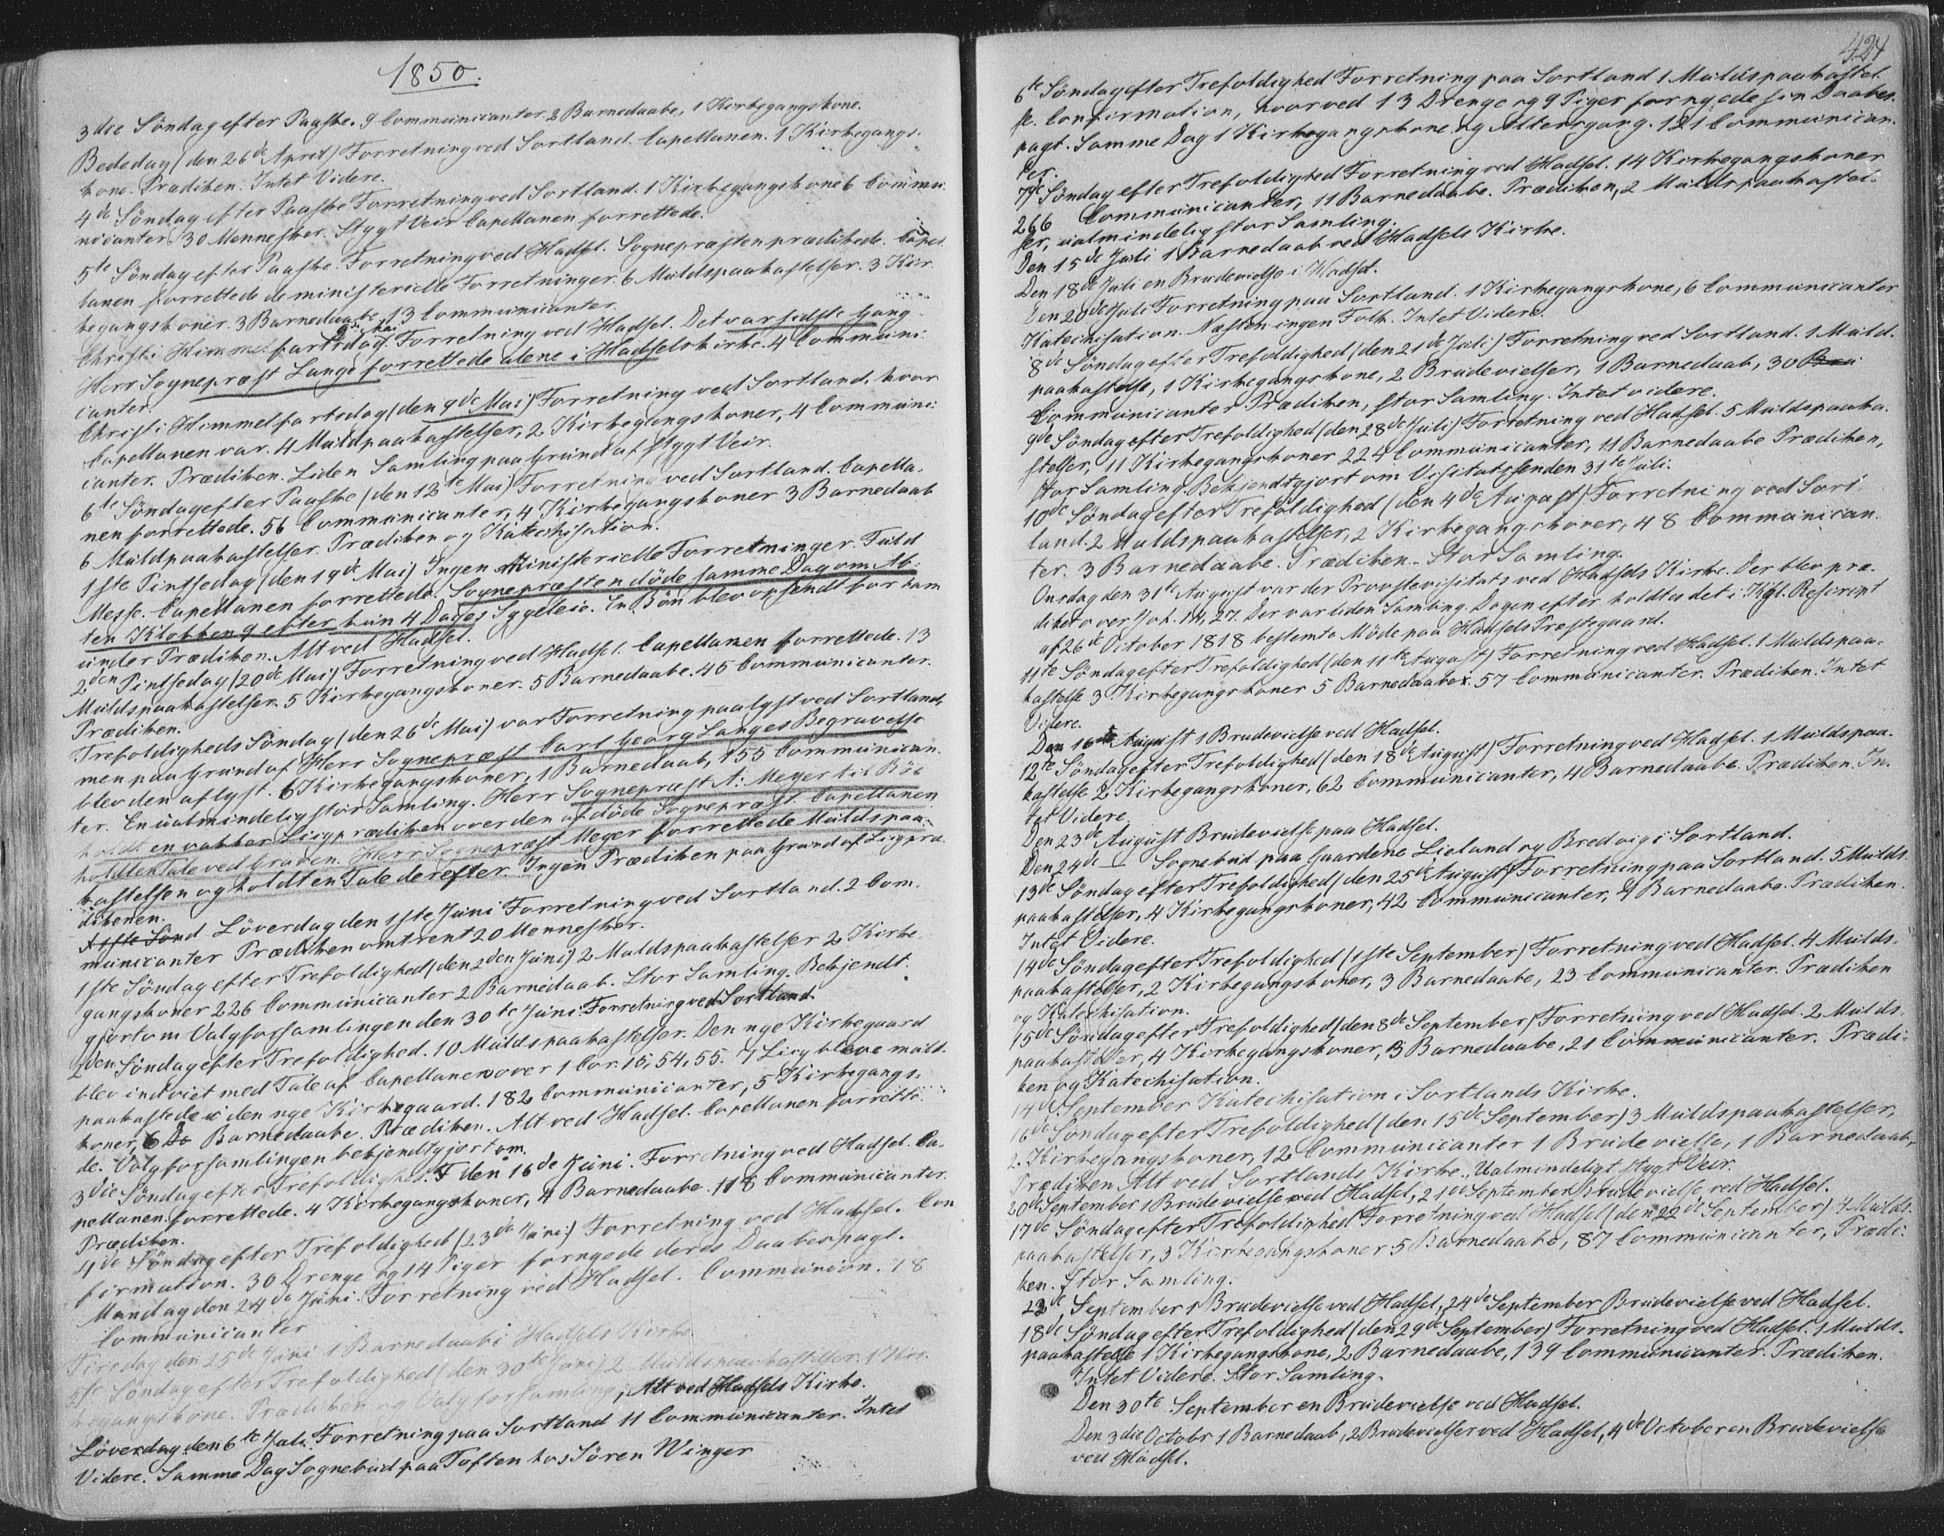 1850.
3die Söndag efter Paaske. 9 Communicanter 2 Barnedaabe, 1 Kirkegangskone.
Bededag (den 26de April) Forretning ved Sortland. Capellanen. 1 Kirkegangs-
kone. Prædiken. Intet Videre.
4de Söndag efter Paaske Forretning ved Sortland. 1 Kirkegangskone 6 Commu-
nicanter 30 Mennesker. Stygt Veir Capellanen forrettede.
5te Söndag efter Paaske. Forretning ved Hadsel. Sognepræsten prædikede. Capel-
lanen forrettede de ministerielle Forretninger. 6 Muldspaakastelser. 3 Kir-
kegangskoner. 3 Barnedaabe, 13 Communicanter.
Christi Himmelfartsdag. Forretning ved Hadsel. Det var sidste Gang
Herr Sognepræst Lange forrettede alene i Hadsels kirke. 4 Communi-
canter.
Christi Himmelfartsdag (den 9de Mai) Forretning ved Sortland, hvor
Capellanen var. 4 Muldpaakastelser, 2 Kirkegangskoner, 4 Communi-
canter. Prædiken. Liden Samling paa Grund af stygt Veir.
6te Söndag efter Paaske (den 12te Mai) Forretning ved Sortland. Capella-
nen forrettede. 56 Communicanter, 4 Kirkegangskoner 3 Barnedaab
6 Muldpaakastelser. Prædiken og Katechisation.
1ste Pintsedag (den 19de Mai) Ingen Ministerielle Forretninger. Fuld
Messe. Capellanen forrettede. Sognepræsten döde samme Dag om Af-
ten Klokken 9 efter kun 4 Dages Sygeleie. En Bön blev opsendt for ham
under Prædiken. Alt ved Hadsel.
2den Pintsedag (20de Mai) Forretning ved Hadsel. Capellanen forrettede. 13
Muldspaakastelser. 5 Kirkegangskoner. 5 Barnedaabe. 45 Communicanter.
Prædiken.
Trefoldigheds Söndag (den 26de Mai) var Forretning paalyst ved Sortland,
men paa Grund af Herr Sognepræst Carl Georg Langes Begravelse
blev den aflyst. 6 Kirkegangskoner, 1 Barnedaab, 155 Communican-
ter. En ualmindelig stor Samling. Herr Sognepræst A. Meyer til Böe
holdt en vakker Liigprædiken over den afdöde Sognepræst. Capellanen
holdt en Tale ved Graven. Herr Sognepræst Meyer forrettede Muldspaa-
kastelsen og holdt en Tale derefter. Ingen Prædiken paa Grund af Liigpræ-
dikenen.
Löverdag den 1ste Juni Forretning ved Sortland. 2 Com-
municanter Prædiken omtrent 20 Mennesker.
1ste Söndag efter Trefoldighed (den 2den Juni) 2 Muldspaakastelser 2 Kirke-
gangskoner 226 Communicanter 2 Barnedaab. Stor Samling. Bekjendt-
gjort om Valgforsamlingen den 30te Juni. Forretning ved Sortland
2den Söndag efter Trefoldighed. 10 Muldspaakastelser. Den nye Kirkegaard
blev indviet med Tale af Capellanen over 1 Cor. 15, 54, 55. 7 Liig bleve muld-
paakastede i den nye Kirkegaard. 182 Communicanter, 5 Kirkegangs-
koner, 6 Barnedaabe. Prædiken. Alt ved Hadsel. Capellanen forrette-
de. Valgforsamlingen bekjendtgjort om.
3die Söndag efter Trefoldighed. F den 16de Juni. Forretning ved Hadsel. Ca-
pellanen forrettede. 4 Kirkegangskoner, 4 Barnedaabe. 118 Communicanter.
Prædiken.
4de Söndag efter Trefoldighed (23de Juni) Forretning ved Hadsel. Con
firmation. 30 Drenge og 14 Piger fornyede deres Daabespagt.
Mandag den 24de Juni. Forretning ved Hadsel. Communion. 78
Communicanter
Tirsdag den 25de Juni 1 Barnedaab i Hadsels Kirke
5te Söndag efter Trefoldighed (den 30te Juni) 2 Muldspaakastelser. 1 Kir-
kegangskone. Prædiken og Valgforsamling, Alt ved Hadsels Kirke.
Löverdag den 6te Juli. Forretning paa Sortland 11 Communicanter. Intet
Videre. Samme Dag Sognebud paa Toften hos Sören Winger
424
6te Söndag efter Trefoldighed Forretning paa Sortland 1 Muldspaakastel-
se. Confirmation, hvorved 13 Drenge og 9 Piger fornyede sin Daabes-
pagt. Samme Dag 1 Kirkegangskone og Altergang. 121 Communican-
ter.
7de Söndag efter Trefoldighed Forretning ved Hadsel. 14 Kirkegangskoner
266 Communicanter, 11 Barnedaabe. Prædiken, 2 Muldspaakastel-
ser, ualmindelig stor Samling.
Den 15de Juli 1 Barnedaab ved Hadsels Kirke.
Den 18de Juli en Brudevielse i Hadsel.
Den 20de Juli Forretning paa Sortland. 1 Kirkegangskone, 6 Communicanter
Katechisation. Næsten ingen Folk. Intet Videre.
8de Söndag efter Trefoldighed (den 21de Juli) Forretning ved Sortland. 1 Muld-
paakastelse, 1 Kirkegangskone, 2 Brudevielser, 1 Barnedaab, 30
Communicanter Prædiken, stor Samling. Intet videre.
9de Söndag efter Trefoldighed (den 28de Juli) Forretning ved Hadsel. 5 Muldspaaka-
stelser, 11 Kirkegangskoner 224 Communicanter, 11 Barnedaabe Prædiken,
stor Samling. Bekjendtgjort om Visitatsen den 31te Juli.
10de Söndag efter Trefoldighed (den 4de August) Forretning ved Sort
land. 2 Muldspaakastelser, 2 Kirkegangskoner, 48 Communican-
ter. 3 Barnedaabe. Prædiken. Stor Samling.
Onsdag den 31te August var der Provstevisitats ved Hadsels Kirke. Der blev præ-
diket over Joh. 14, 27. Der var liden Samling. Dagen efter holdtes det i Kgl. Rescript
af 26de October 1818 bestemte Möde paa Hadsels Prestegaard.
11te Söndag efter Trefoldighed (den 11te August) Forretning ved Hadsel. 1 Muldspaa-
kastelse 3 Kirkegangskoner 5 Barnedaabe. 57 Communicanter. Prædiken. Intet
Videre.
Den 16de August 1 Brudevielse ved Hadsel.
12te Söndag efter Trefoldighed (den 18de August) Forretning ved Hadsel. 1 Muldspaa-
kastelse 2 Kirkegangskoner, 62 Communicanter, 4 Barnedaabe. Prædiken. In-
tet Videre.
Den 23de August Brudevielse paa Hadsel.
Den 24de Sognebud paa Gaardene Lieland og Bredvig i Sortland.
13de Söndag efter Trefoldighed (den 25de August) Forretning paa Sortland. 5 Muld-
paakastelser, 4 Kirkegangskoner, 42 Communicanter, 4 Barnedaabe. Prædiken.
Intet Videre.
14de Söndag efter Trefoldighed (1ste September) Forretning ved Hadsel. 4 Mulds-
paakastelser, 2 Kirkegangskoner, 3 Barnedaabe, 23 Communicanter. Prædiken
og Katechisation.
15de Söndag efter Trefoldighed (den 8de September) Forretning ved Hadsel. 2 Mulds-
paakastelser, 4 Kirkegangskoner, 3 Barnedaabe, 21 Communicanter. Prædi-
ken og Katechisation.
14de September Katechisation i Sortlands Kirke.
16de Söndag efter Trefoldighed (den 15de September) 3 Muldspaakastelser,
2 Kirkegangskoner, 12 Communicanter 1 Brudevielse, 1 Barnedaab,
Prædiken Alt ved Sortlands Kirke. Ualmindeligt stygt Veir.
20de September 1 Brudevielse ved Hadsel, 21de September Brudevielse ved Hadsel.
17de Söndag efter Trefoldighed Forretning ved Hadsel (den 22de September) 4 Mulds-
paakastelser, 3 Kirkegangskoner 5 Barnedaabe, 87 Communicanter, Prædi-
ken. Stor Samling.
23de September 1 Brudevielse ved Hadsel, 24de September Brudevielse ved Hadsel.
18de Söndag efter Trefoldighed (den 29de September) Forretning ved Hadsel. 1 Mulds-
paakastelse 1 Kirkegangskone, 2 Barnedaabe, 139 Communicanter. Prædiken.
Intet Videre. Stor Samling.
Den 30te September en Brudevielse ved Hadsel.
Den 3die Octobr 1 Barnedaab, 2 Brudevielser ved Hadsel, 4de October en Brudevielse
ved Hadsel.